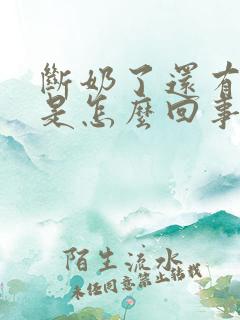 斷奶了還有
是怎麼回事
陌生流水
未经同意禁止转载